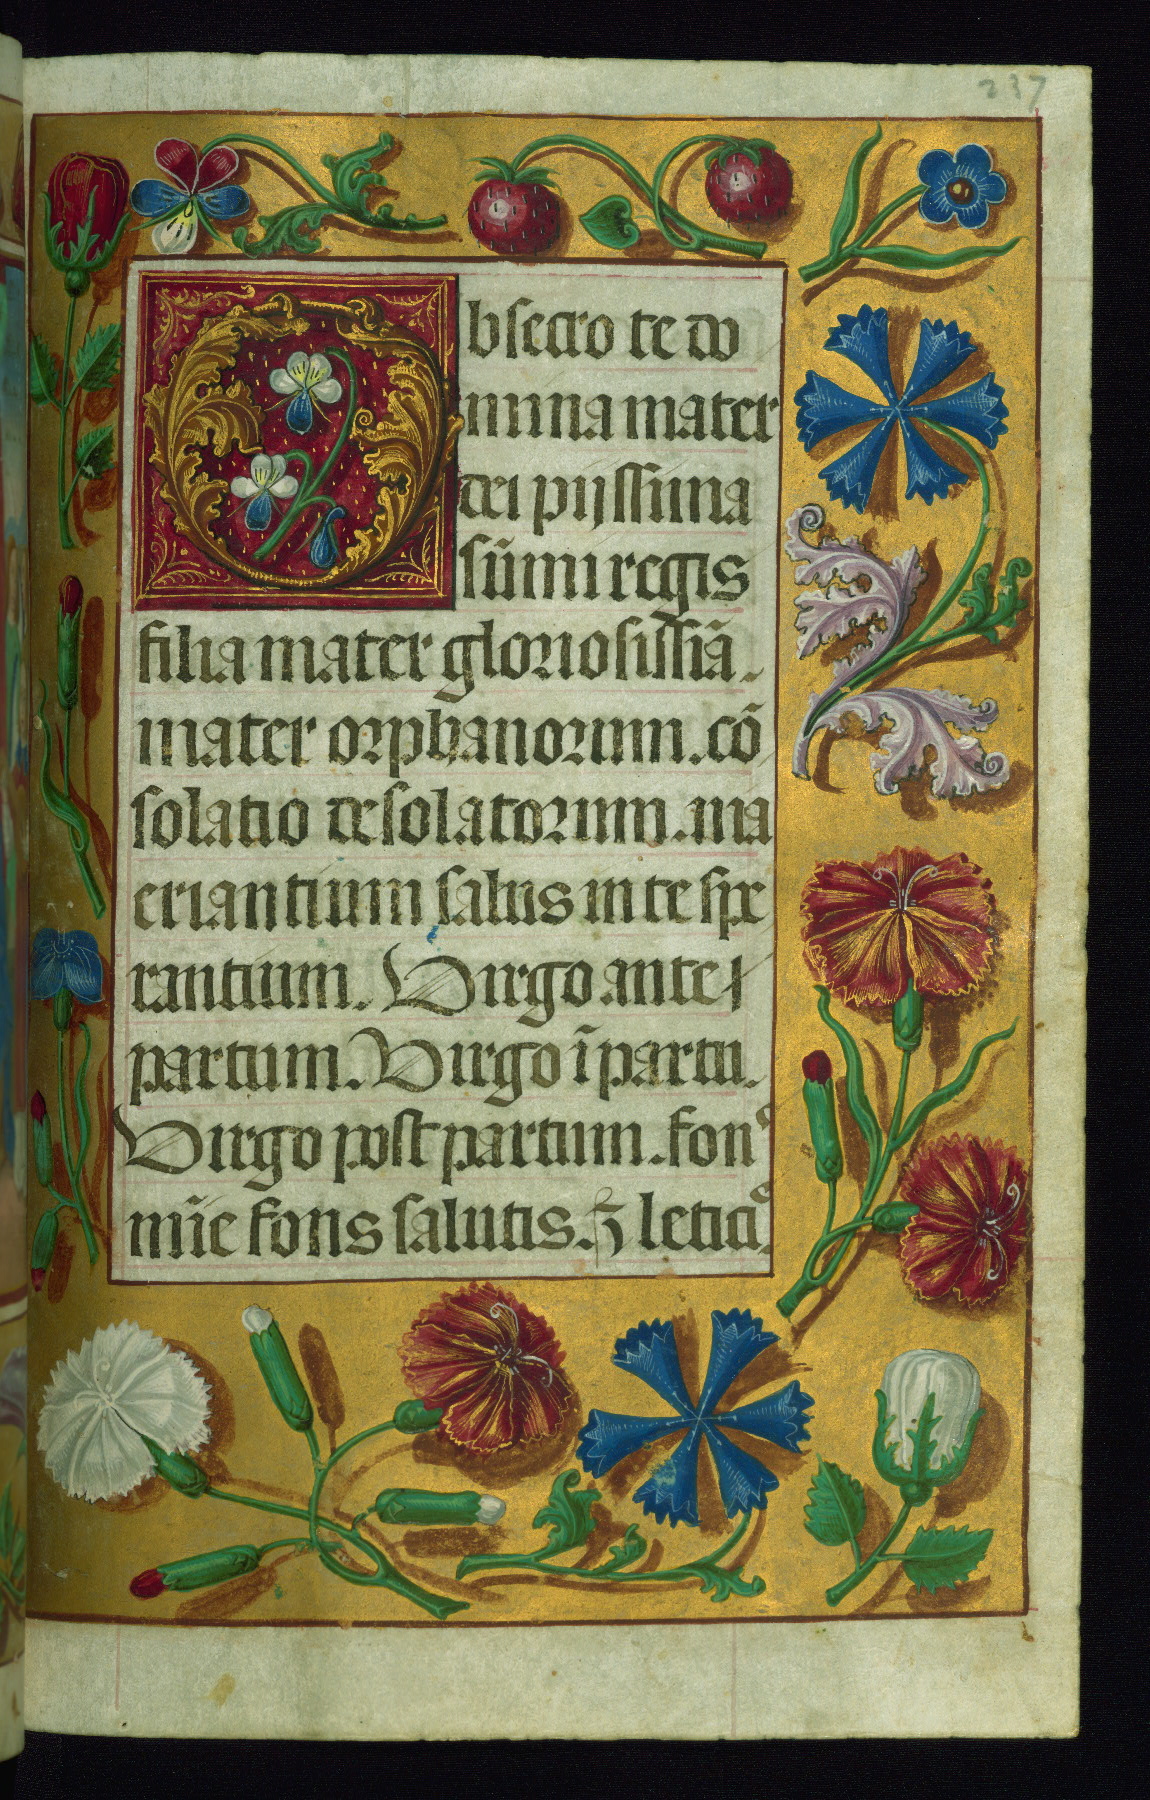 237
Obsecro te do
mina mater
dei pijssima
sūmi regis
filia mater gloriosissiā.
mater orphanorum. cō
solatio desolatorum. ma
eriantium salus in te spe
rantium. Virgo ante
partum. Virgo ī partu.
Virgo post partum. fonˢ
mīe fons salutis. ⁊ leticiˢ.